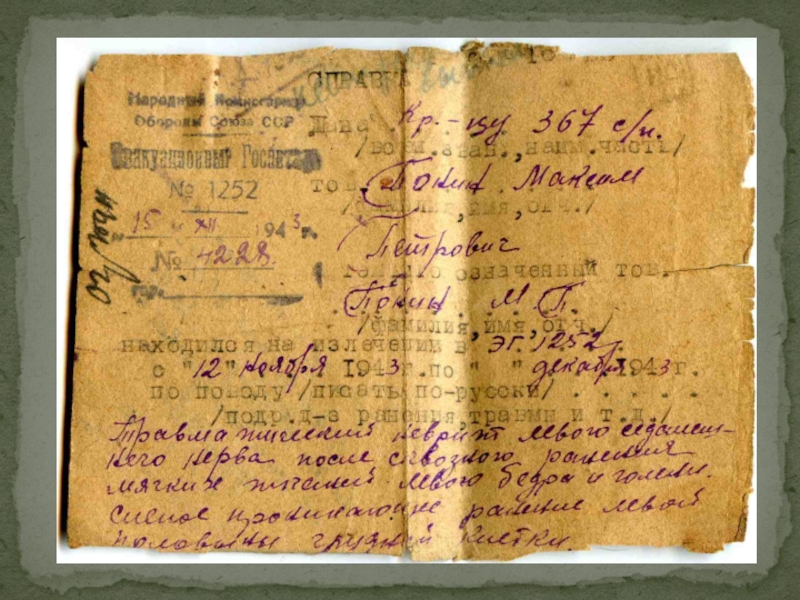 СПРАВКА
Народный Комиссариат
Обороны Союза ССР
Эвакуационный Госпиталь
№ 1252
15 " XII 1943 г.
№ 4228.
Дана Кр.-цу 367 с/п.
/воен.зван., наим.части/
тов. Покин Максим
/фамилия, имя, отч./
Петрович
в том, что означенный тов.
Покин М. П.
/фамилия, имя, отч./
находился на излечении в ЭГ. 1252
с "12" ноября 1943 г. по " " декабря 1943 г.
по поводу /писать по-русски/ . . . . .
/подр.д-з ранения, травмы и т.д./
Травматический неврит левого седалищ-
ного нерва после сквозного ранения
мягких тканей левого бедра и голени.
Слепое проникающее ранение левой
половины грудной клетки.